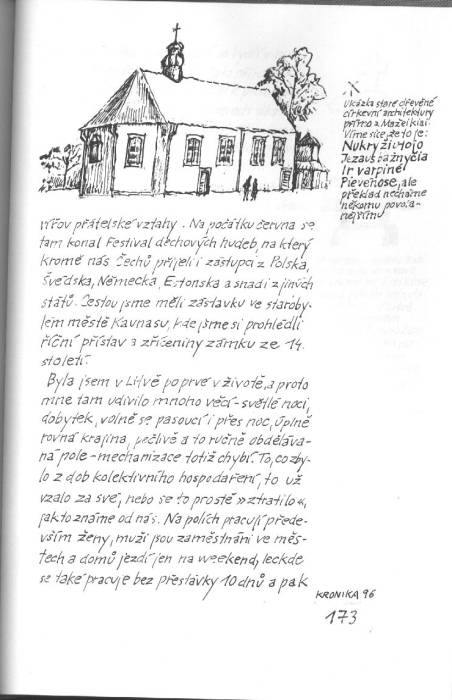 Ukázka staré dřevěné
církevní architektury
přímo z Mažeikiai.
Víme sice, že to je:
Nukryžiutojo
Jezaus bažnyčia
Ir varpinė
Pievėnose, ale
překlad necháme
někomu povola-
nějšímu
nířov přátelské vztahy. Na počátku června se
tam konal Festival dechových hudeb, na který
kromě nás Čechů přijeli i zástupci z Polska,
Švédska, Německa, Estonska a snad i z jiných
států. Cestou jsme měli zastávku ve staroby-
lém městě Kaunasu, kde jsme si prohlédli
říční přístav a zříceniny zámku ze 14.
století.
Byla jsem v Litvě poprvé v životě, a proto
mne tam udivilo mnoho věcí – světlé noci,
dobytek, volně se pasoucí i přes noc, úplně
rovná krajina, pečlivě a to ručně obděláva-
ná pole – mechanizace totiž chybí. To, co zby-
lo z dob kolektivního hospodaření, to už
vzalo za své, nebo se to prostě »ztratilo«,
jak to známe od nás. Na polích pracují přede-
vším ženy, muži jsou zaměstnáni ve měs-
tech a domů jezdí jen na weekend, leckde
se také pracuje bez přestávky 10 dnů a pak
KRONIKA 96
173